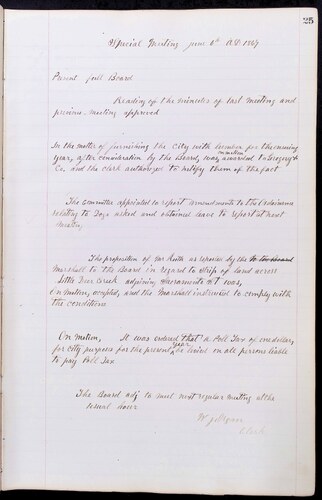 25
Special Meeting June 6th A.D. 1867
Present full Board
Reading of the minutes of last meeting and
previous meeting approved
In the matter of furnishing the City with lumber for the coming
year, after consideration by the Board, was on motion awarded to Gregory &
Co, and the clerk authorized to notify them of the fact
The Committee appointed to report amendments to the Ordinance
relating to Dogs asked and obtained leave to report at next
meeting
The proposition of Mr Keith as reported by the
Marshall to the Board in regard to strip of land across
Little Deer Creek adjoining Sacramento St was,
On motion, accepted, and the Marshall instructed to comply with
the conditions
On motion, It was ordered that a Poll Tax of one dollar,
for City purposes for the present year be levied on all persons liable
to pay Poll Tax
The Board adj to meet next regular meeting at the
usual hour
Clerk